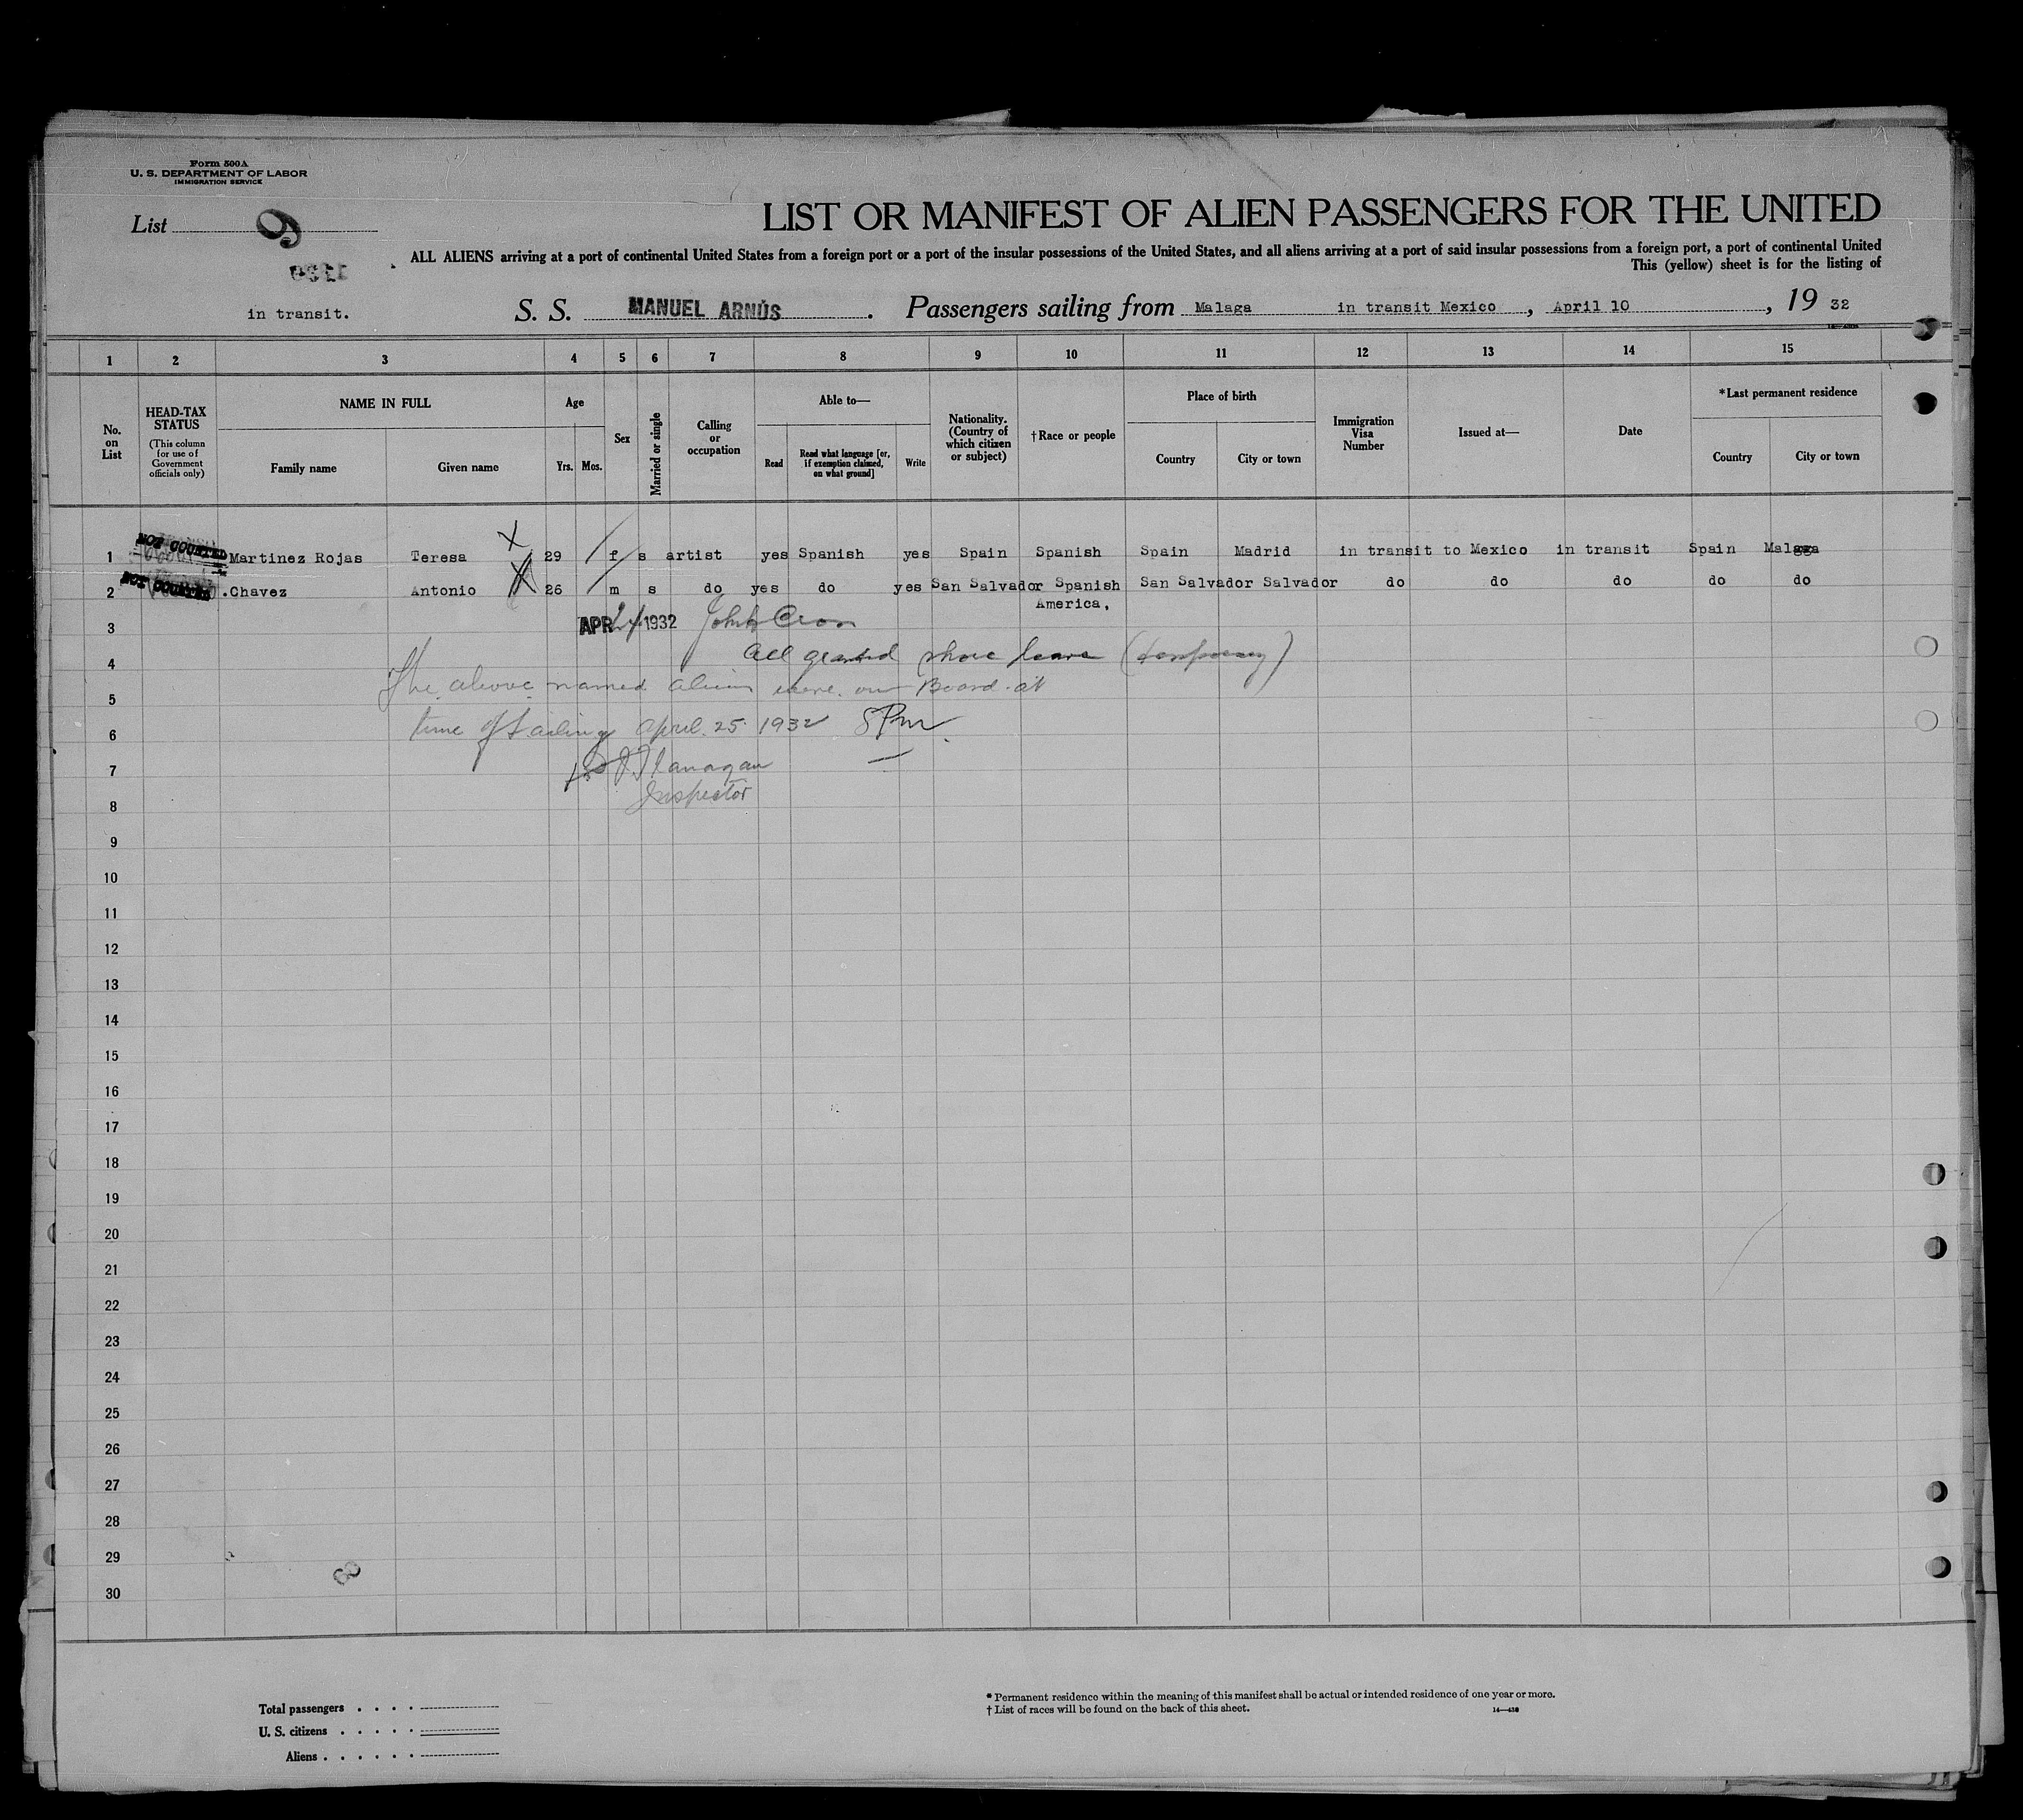 Form 500A
U. S. DEPARTMENT OF LABOR
IMMIGRATION SERVICE
List 9
LIST OR MANIFEST OF ALIEN PASSENGERS FOR THE UNITED
ALL ALIENS arriving at a port of continental United States from a foreign port or a port of the insular possessions of the United States, and all aliens arriving at a port of said insular possessions from a foreign port, a port of continental United
This (yellow) sheet is for the listing of
in transit. S. S. MANUEL ARNÚS. Passengers sailing from Malaga in transit Mexico, April 10, 19 32
1 2 3 4 5 6 7 8 9 10 11 12 13 14 15
No. on List
HEAD-TAX STATUS
(This column for use of Government officials only)
NAME IN FULL
Family name Given name
Age
Yrs. Mos.
Sex
Married or single
Calling or occupation
Able to—
Read Read what language [or, if exemption claimed, on what ground] Write
Nationality. (Country of which citizen or subject)
†Race or people
Place of birth
Country City or town
Immigration Visa Number
Issued at—
Date
*Last permanent residence
Country City or town
1 NOT COUNTED Martinez Rojas Teresa X 29 f s artist yes Spanish yes Spain Spanish Spain Madrid in transit to Mexico in transit Spain Malaga
2 NOT COUNTED Chavez Antonio X 26 m s do yes do yes San Salvador Spanish San Salvador Salvador do do do do do
America.
3 APR 24 1932 John
4 All granted shore leave (temporary)
The above named aliens were on Board at
5
time of sailing April 25 1932 8 Pm
6
7 Flanagan
Inspector
8
9
10
11
12
13
14
15
16
17
18
19
20
21
22
23
24
25
26
27
28
29
30
Total passengers
U. S. citizens
Aliens
* Permanent residence within the meaning of this manifest shall be actual or intended residence of one year or more.
† List of races will be found on the back of this sheet.